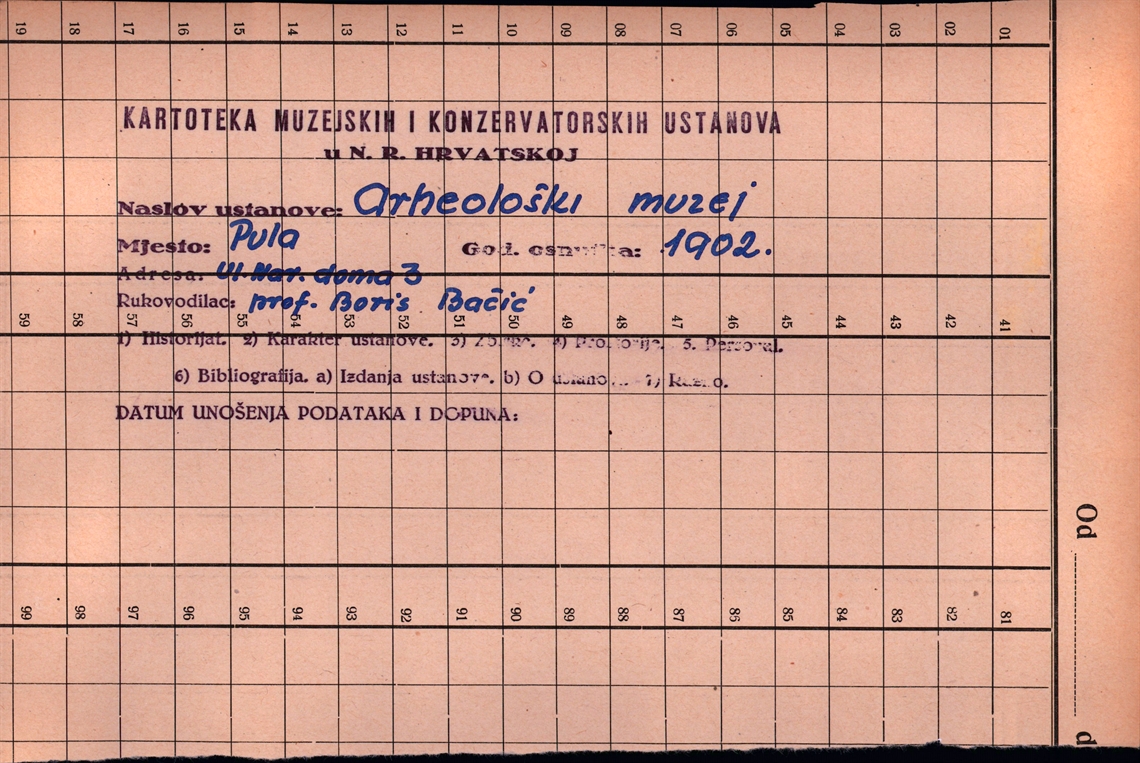 19 18 17 16 15 14 13 12 11 10 09 08 07 06 05 04 03 02 01
KARTOTEKA MUZEJSKIH I KONZERVATORSKIH USTANOVA
u N. R. HRVATSKOJ
Naslov ustanove: Arheološki muzej
Mjesto: Pula God. osnutka: 1902.
Adresa: Ul. Nar. doma 3
Rukovodilac: prof. Boris Bačić
59 58 57 56 55 54 53 52 51 50 49 48 47 46 45 44 43 42 41
1) Historijat. 2) Karakter ustanove. 3) Zbirke. 4) Prostorije. 5. Personal.
6) Bibliografija. a) Izdanja ustanove. b) O ustanovi. 7) Razno.
DATUM UNOŠENJA PODATAKA I DOPUNA:
Od
99 98 97 96 95 94 93 92 91 90 89 88 87 86 85 84 83 82 81
d